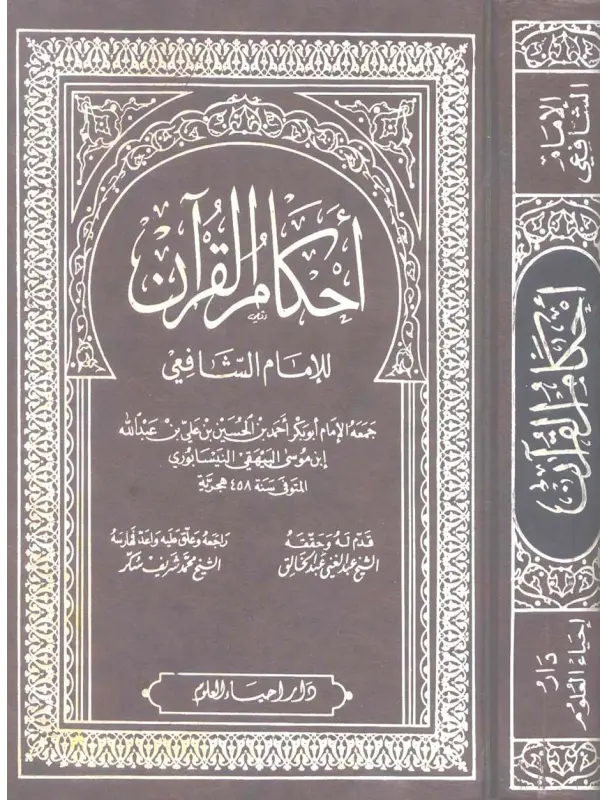 أحكام القرآن
للإمام الشافعي
جمعه الإمام أبو بكر أحمد بن الحسين بن علي بن عبد الله
ابن موسى البيهقي النيسابوري
المتوفى سنة ٤٥٨ هجرية
قدم له وحققه
الشيخ عبد الغني عبد الخالق
راجعه وعلق عليه واعد فهارسه
الشيخ محمد شريف سكر
دار احياء العلوم
الإمام
الشافعي
أحكام القرآن
دار
إحياء العلوم